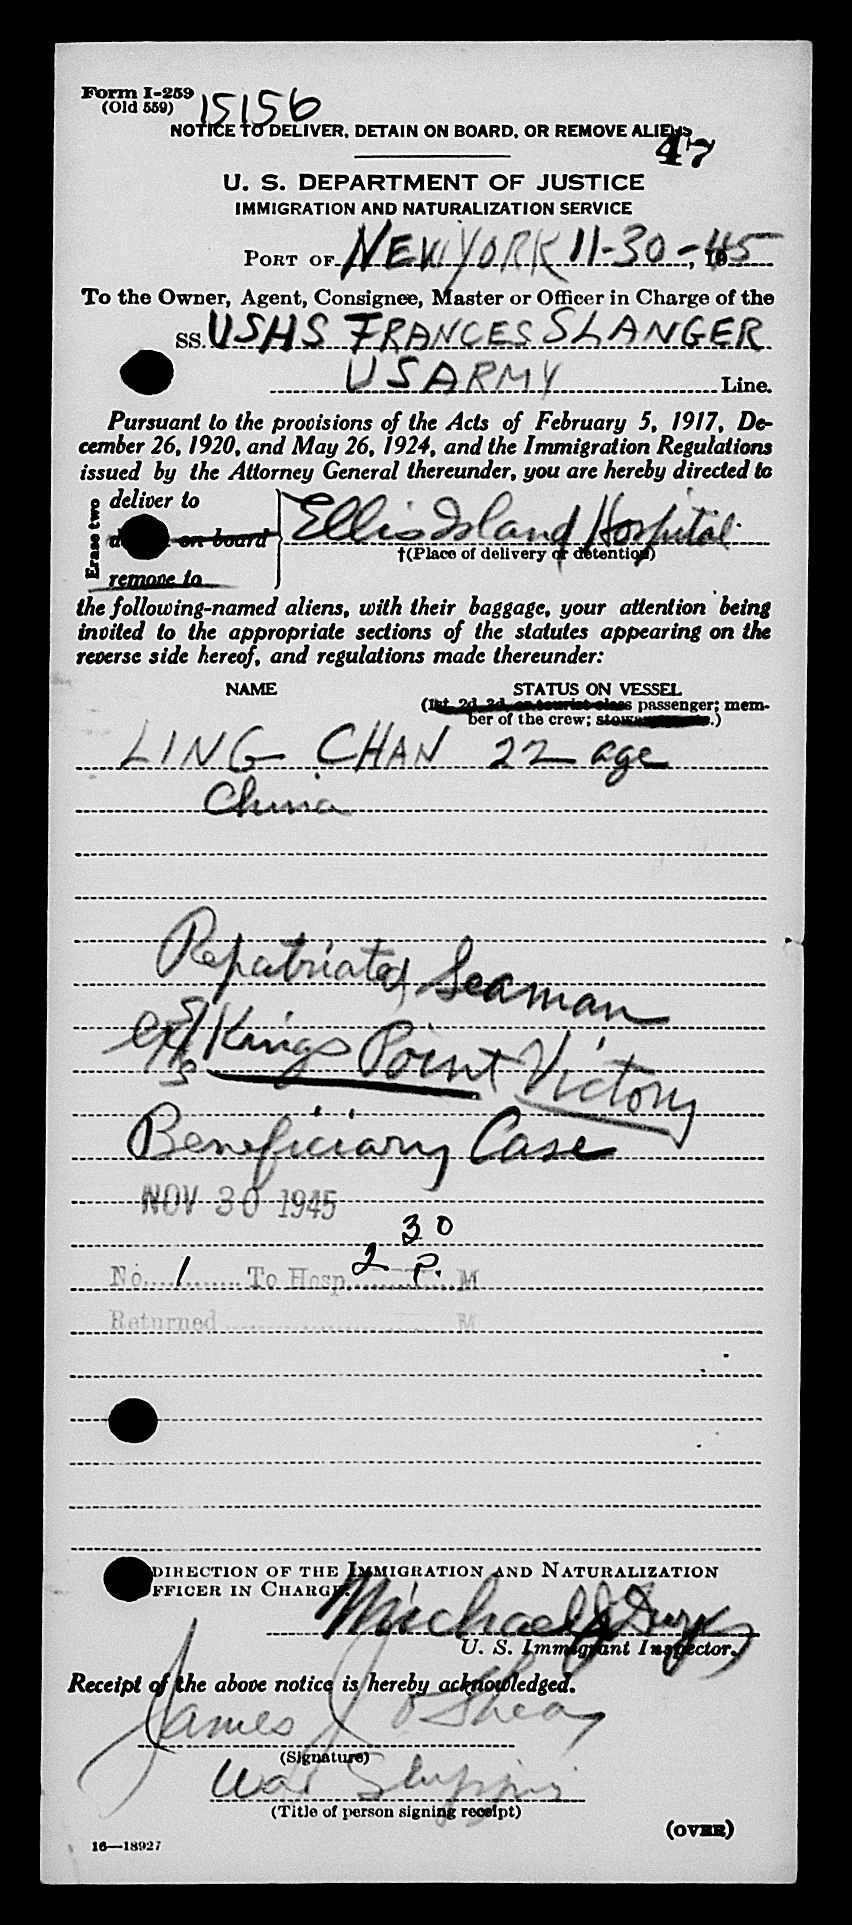 Form I-259
(Old 559)
15156
NOTICE TO DELIVER, DETAIN ON BOARD, OR REMOVE ALIENS
47
U. S. DEPARTMENT OF JUSTICE
IMMIGRATION AND NATURALIZATION SERVICE
PORT OF NEW YORK 11-30-45, 19
To the Owner, Agent, Consignee, Master or Officer in Charge of the
SS. USHS FRANCES SLANGER
US ARMY Line.
Pursuant to the provisions of the Acts of February 5, 1917, De-
cember 26, 1920, and May 26, 1924, and the Immigration Regulations
issued by the Attorney General thereunder, you are hereby directed to
Erase two
deliver to
on board Ellis Island Hospital.
†(Place of delivery or detention)
remove to
the following-named aliens, with their baggage, your attention being
invited to the appropriate sections of the statutes appearing on the
reverse side hereof, and regulations made thereunder:
NAME STATUS ON VESSEL
(1st, 2d, 3d, or tourist class passenger; mem-
ber of the crew; stowaways.)
LING CHAN 22 age
China
Repatriated Seaman
ex SS Kings Point Victory
Beneficiary Case
NOV 30 1945
No. 1 To Hosp. 2 30 P. M
Returned M
DIRECTION OF THE IMMIGRATION AND NATURALIZATION
FFICER IN CHARGE.
Michael J
U. S. Immigrant Inspector.
Receipt of the above notice is hereby acknowledged.
James J O'Shea
(Signature)
War Shipping
(Title of person signing receipt)
(OVER)
16—18927